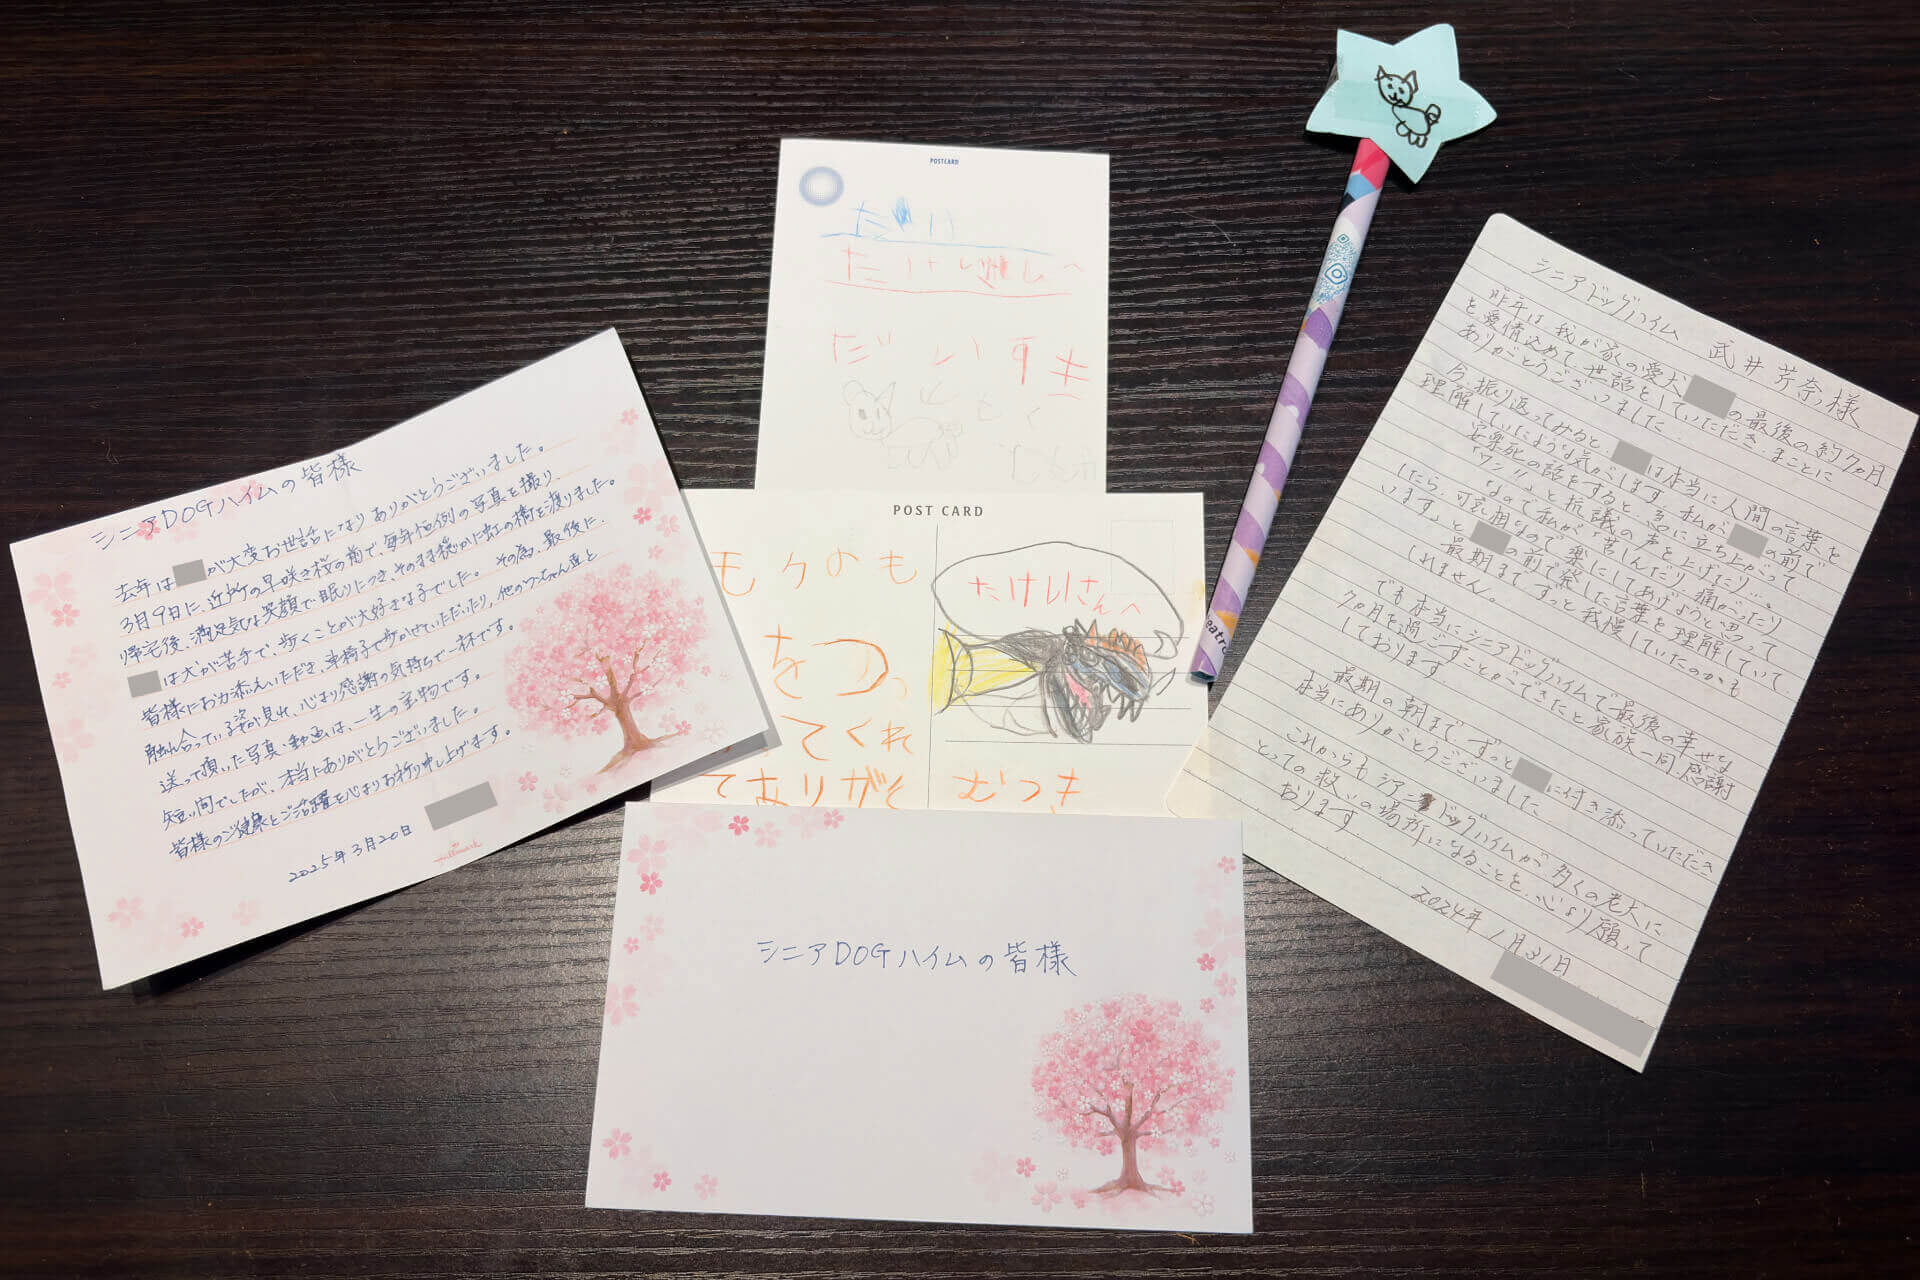 シニアDOGハイムの皆様
去年は が大変お世話になりありがとうございました。
3月9日に、近所の早咲き桜の前で、毎年恒例の写真を撮り、
帰宅後、満足気な笑顔で眠りにつき、そのまま穏やかに虹の橋を渡りました。
は犬が苦手で、歩くことが大好きな子でした。その為、最後に、
皆様にお力添えいただき、車椅子で歩かせていただいたり、他のワンちゃん達と
触れ合っている姿が見れ、心より感謝の気持ちで一杯です。
送って頂いた写真・動画は、一生の宝物です。
短い間でしたが、本当にありがとうございました。
皆様のご健康とご活躍を心よりお祈り申し上げます。
2025年3月20日
Hallmark
POSTCARD
だいすき
POST CARD
たけいさんへ
をつ
てくれ
てありがそ
むつき
シニアDOGハイムの皆様
eatr
シニアドッグハイム 武井 芹奈様
昨年は我が家の愛犬 の最後の約7ヵ月
を愛情込めて世話をしていただき、まことに
ありがとうございました。
今、振り返ってみると、 は本当に人間の言葉を
理解していたような気がします。私が の前で
安楽死の話をすると、急に立ち上がって、
「ワンッ」と抗議の声を上げたり…。
なので私が「苦しんだり、痛がったり
したら、可哀相なので楽にしてあげようと思って
います」と の前で発した言葉を理解していて、
最期まで、ずっと我慢していたのかも
しれません。
でも本当にシニアドッグハイムで最後の幸せな
7ヵ月を過ごすことができたと家族一同、感謝
しております。
最期の朝まで、ずっと に付き添っていただき
本当にありがとうございました。
これからもシニアドッグハイムが多くの老犬に
とっての救いの場所になることを、心より願って
おります。
2024年1月31日